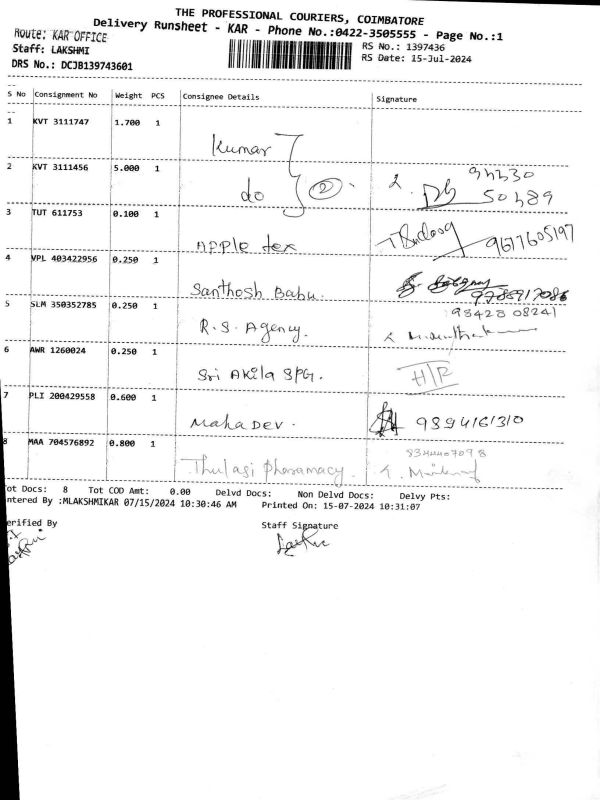 THE PROFESSIONAL COURIERS, COIMBATORE
Delivery Runsheet - KAR - Phone No.:0422-3505555 - Page No.:1
Route: KAR OFFICE
RS No.: 1397436
Staff: LAKSHMI
RS Date: 15-Jul-2024
DRS No.: DCJB139743601
S No Consignment No Weight PCS Consignee Details Signature
1 KVT 3111747 1.700 1 Kumar
2 KVT 3111456 5.000 1 do ②
3 TUT 611753 0.100 1 Apple tex 9677605197
4 VPL 403422956 0.250 1 Santhosh Babu.
5 SLM 350352785 0.250 1 R.S. Agency. 93423 08241
6 AWR 1260024 0.250 1 Sri Akila SPG. H/R
7 PLI 200429558 0.600 1 Mahadev. 9894161310
8 MAA 704576892 0.800 1 Thulasi Pharamacy.
Tot Docs: 8 Tot COD Amt: 0.00 Delvd Docs: Non Delvd Docs: Delvy Pts:
ntered By :MLAKSHMIKAR 07/15/2024 10:30:46 AM Printed On: 15-07-2024 10:31:07
erified By Staff Signature